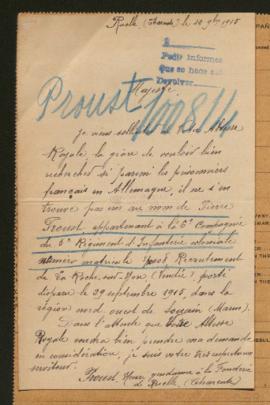 Ruelle (Charente) le 20 9bre 1915
Pedir informes
que se hace
Devolver
Majesté,
Proust 100811
je viens solliciter Votre Altesse
Royale, la grâce de vouloir bien
rechercher si parmi les prisonniers
français en Allemagne, il ne s'en
trouve pas un au nom de Pierre
Proust, appartenant à la 6e Compagnie
du 5e Régiment d'Infanterie coloniale
numéro matricule Recrutement
de La Roche-sur-Yon (Vendée) porté
disparu le 29 septembre 1915, dans la
région nord ouest de Souain (Marne).
Dans l'attente que Votre Altesse
Royale voudra bien prendre ma demande
en considération, je suis votre très respectueux
serviteur.
Proust gendarme à la Fonderie
de Ruelle (Charente)